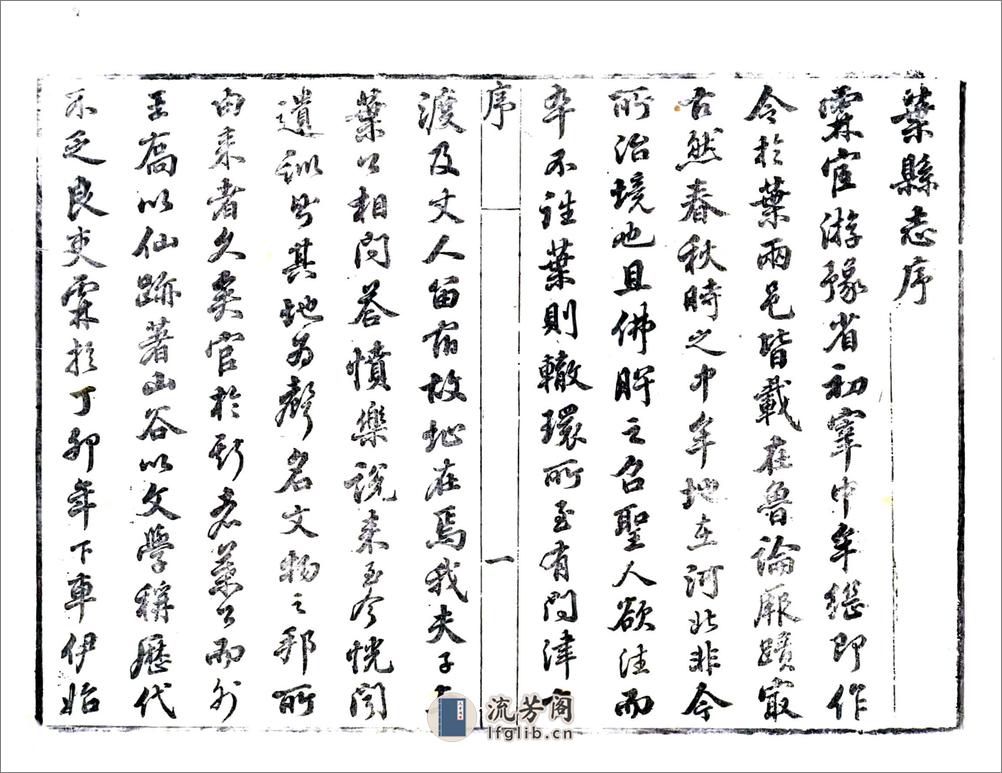 葉縣志序
霖宦游豫省初宰中牟繼即作
令於葉兩邑皆載在魯論厥蹟最
古然春秋時之中牟地在河北非今
所治境也且佛肸之召聖人欲往而
卒不往葉則轍環所至有問津
序
一
渡及丈人留宿故地在焉我夫子
葉公相問答憤樂說來至今恍聞
遺訓署其地為聲名文物之邦所
由来者久矣官於斯者葉公而外
王喬以仙跡著山谷以文學稱歷代
不乏良吏霖於丁卯年下車伊始
流芳阁
lfglib.cn